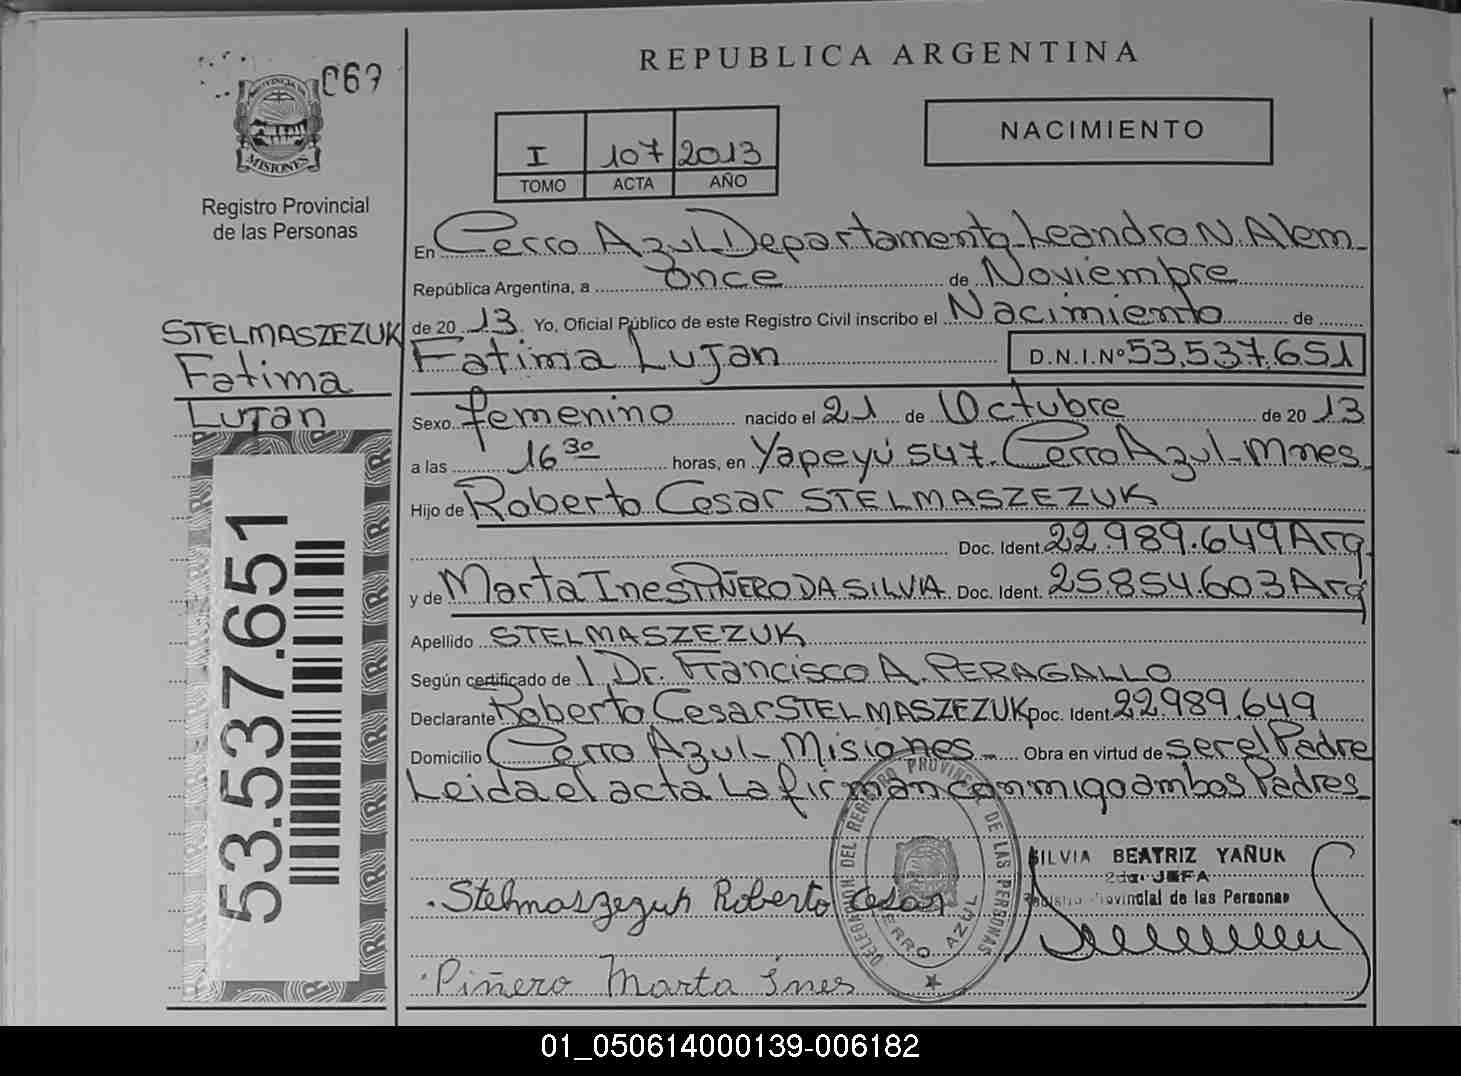 069
PROVINCIA DE
MISIONES
Registro Provincial
de las Personas
REPUBLICA ARGENTINA
I 107 2013
TOMO ACTA AÑO
NACIMIENTO
En Cerro Azul Departamento Leandro N. Alem
República Argentina, a once de Noviembre
de 20 13. Yo, Oficial Público de este Registro Civil inscribo el Nacimiento de
Fatima Lujan D.N.I.Nº 53.537.651
STELMASZEZUK
Fatima
Lujan
Sexo femenino nacido el 21 de Octubre de 20 13
a las 16 30 horas, en Yapeyú 547. Cerro Azul-Mnes
Hijo de Roberto Cesar STELMASZEZUK
Doc. Ident. 22.989.649 Arg
y de Marta Ines PIÑERO DA SILVIA Doc. Ident. 25.854.603 Arg
Apellido STELMASZEZUK
Según certificado de l Dr. Francisco A. PERAGALLO
Declarante Roberto Cesar STELMASZEZUK Doc. Ident. 22989.649
Domicilio Cerro Azul-Misiones- Obra en virtud de ser el Padre
Leida el acta La firman conmigo ambos Padres
53.537.651
DELEGACION DEL REGISTRO PROVINCIAL DE LAS PERSONAS
CERRO AZUL
SILVIA BEATRIZ YAÑUK
2da. JEFA
Registro Provincial de las Personas
Stelmaszezuk Roberto Cesar
Piñero Marta Ines
01_050614000139-006182